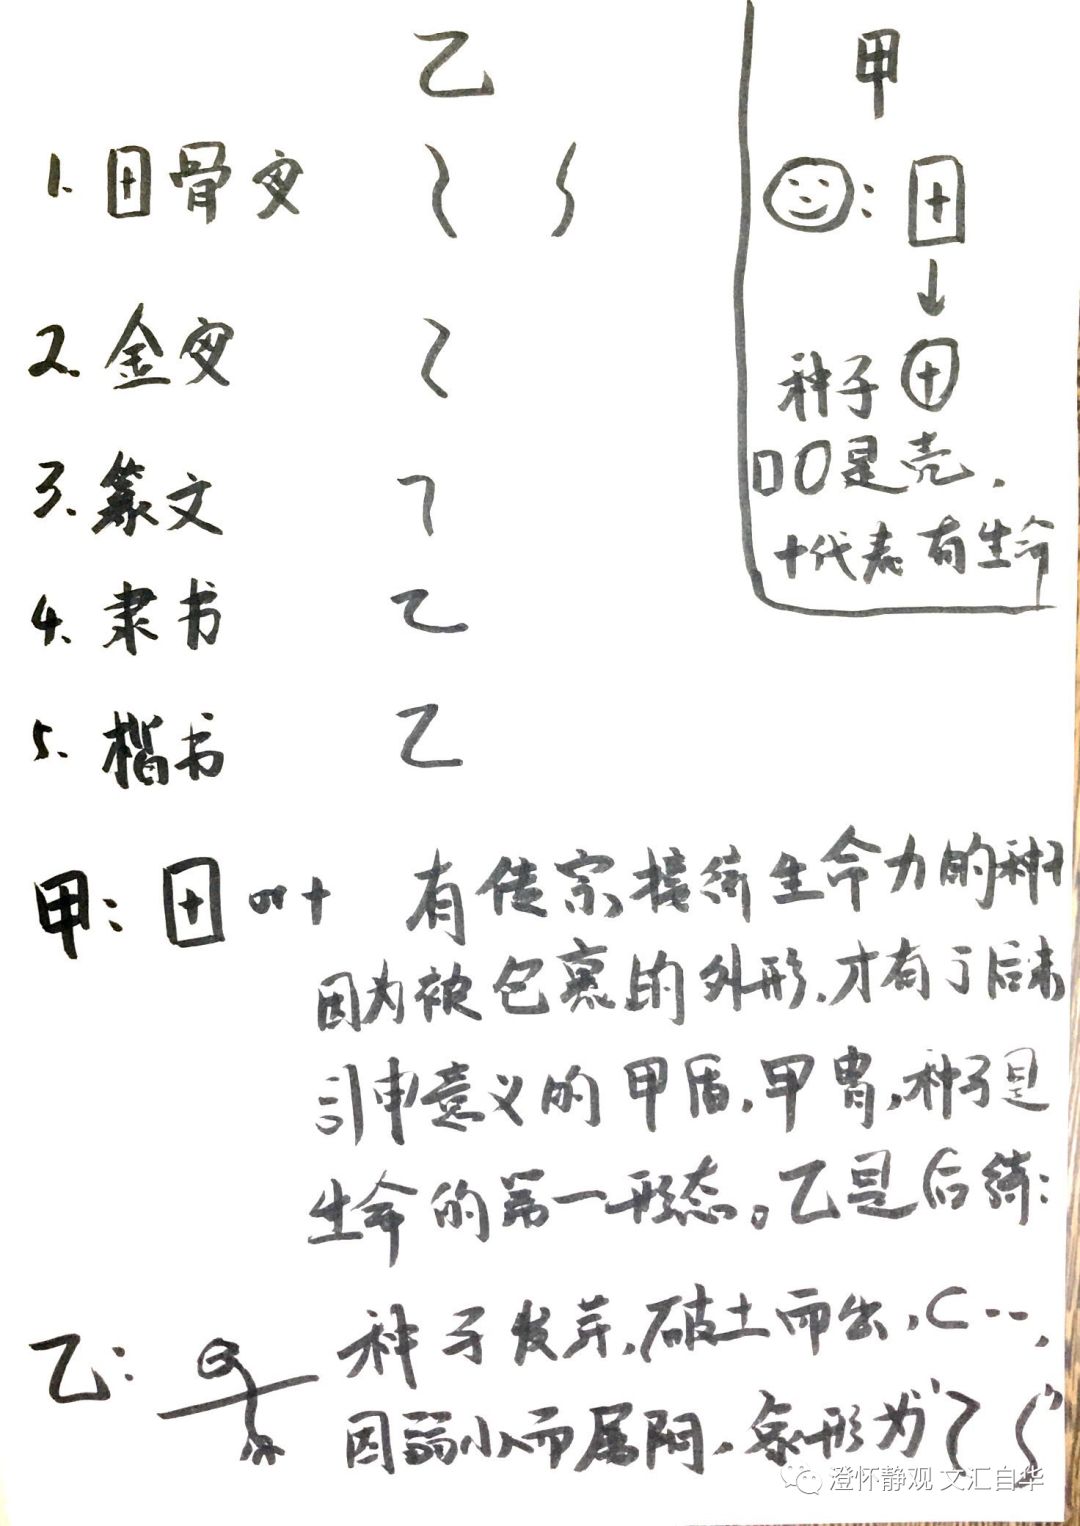 乙
1. 甲骨文
2. 金文
3. 篆文
4. 隶书 乙
5. 楷书 乙
甲
:
种子
口〇是壳.
十代表有生命
甲: 叶 有传宗接续生命力的种子
因为被包裹的外形.才有了后来
引申意义的甲盾.甲胄,种子是
生命的第一形态。乙是后续:
乙: 种子发芽.破土而出,
因弱小而属阴.象形为
澄怀静观 文汇自华